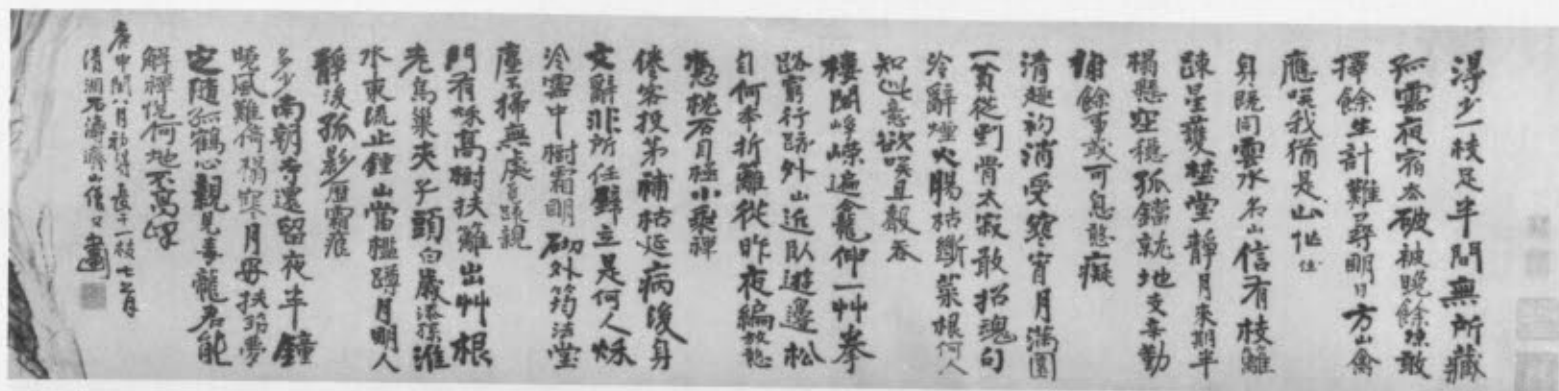 得少一枝足半間無所藏
孤雲夜宿去破被晚餘凉敢
擇餘生計難尋明日方山禽
應嘆我猶是山忙住
身既同雲水名山信有枝籬
疎星護堂靜月來期半
榻懸空穩孤鐺就地支辛勤
謝餘事或可息憨癡
清趣初消受寒宵月滿園
一貧從到骨太寂敢招魂句
冷辭煙火腸枯斷菜根何人
知此意欲嘆且聲吞
樓閣崢嶸遍龕伸一艸拳
路窮行跡外山近臥遊邊松
自何年折籬從昨夜編放憨
憑枕石目極小乘禪
倦客投茅補枯延病後身
文辭非所任壁立是何人秋
冷雲中樹霜明砌外筠法堂
塵不掃無處覓疎親
門有秋高樹扶籬出艸根
老烏巢夫子頭白歲添孫淮
水東流止鍾山當檻蹲月明人
靜後孤影歷霜痕
多少南朝寺還留夜半鐘
曉風難倚榻寒月毋扶筇夢
定隨孤鶴心親見毒龍君能
解禪悅何地不高峰
庚申閏八月初得長干一枝七首
清湘石濤濟山僧又畫